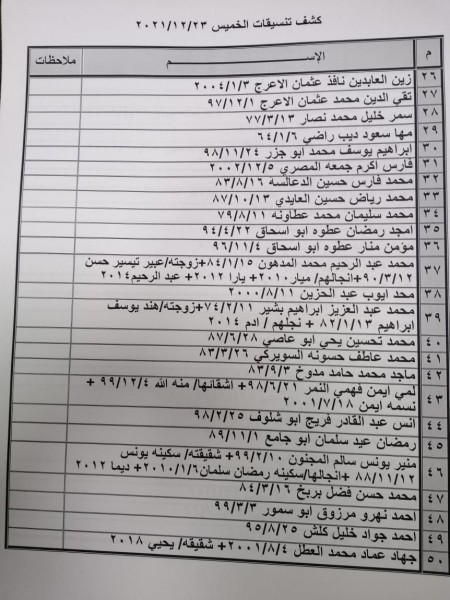 كشف تنسيقات الخميس ٢٠٢١/١٢/٢٣
م الإســـــــــم ملاحظات
٢٦ زين العابدين نافذ عثمان الاعرج ٢٠٠٤/١/٣
٢٧ تقي الدين محمد عثمان الاعرج ٩٧/١٢/١
٢٨ سمر خليل محمد نصار ٧٧/٣/١٣
٢٩ مها سعود ديب راضي ٦٤/١/٦
٣٠ ابراهيم يوسف محمد ابو جزر ٩٨/١١/٢٤
٣١ فارس اكرم جمعه المصري ٢٠٠٢/١٢/٥
٣٢ محمد فارس حسين الدعالسه ٨٣/٨/١٦
٣٣ محمد رياض حسين العايدي ٨٧/١٠/١٣
٣٤ محمد سليمان محمد عطاونه ٧٩/٨/١١
٣٥ امجد رمضان عطوه ابو اسحاق ٩٤/٤/٢٢
٣٦ مؤمن منار عطوه ابو اسحاق ٩٦/١١/٤
٣٧ محمد عبد الرحيم محمد المدهون ٨٤/١/١٥+زوجته/عبير تيسير حسن
٩٠/٣/١٢+انجالهم/ ميار٢٠١٠+ يارا ٢٠١٢+ عبد الرحيم٢٠١٤
٣٨ محد ايوب عبد الحزين ٢٠٠٠/٨/١١
٣٩ محمد عبد العزيز ابراهيم بشير ٧٤/٢/١١+زوجته/هند يوسف
ابراهيم ٨٢/١/١٣ + نجلهم / ادم ٢٠١٤
٤٠ محمد تحسين يحي ابو عاصي ٨٧/٦/٢٨
٤١ محمد عاطف حسونه السويركي ٨٣/٣/٢٦
٤٢ ماجد محمد حامد مدوخ ٨٣/٩/٣
٤٣ لمي ايمن فهمي النمر ٩٨/٦/٢١+ اشقانها/ منه الله ٩٩/١٢/٤ +
نسمه ايمن ٢٠٠١/٧/١٨
٤٤ انس عبد القادر فريج ابو شلوف ٩٨/٢/٢٥
٤٥ رمضان عيد سلمان ابو جامع ٨٩/١١/١
٤٦ منير يونس سالم المجنون ٩٩/٢/١٠+ شقيقته/ سكينه يونس
٨٨/١١/١٢ +انجالها/سكينه رمضان سلمان٢٠١٠/١/٦+ ديما ٢٠١٢
٤٧ محمد حسن فضل بربخ ٨٤/٣/١٦
٤٨ احمد نهرو مرزوق ابو سمور ٩٩/٣/٣
٤٩ احمد جواد خليل كلش ٩٥/٨/٢٥
٥٠ جهاد عماد محمد العطل ٢٠٠١/٨/٤+ شقيقه/ يحيي ٢٠١٨